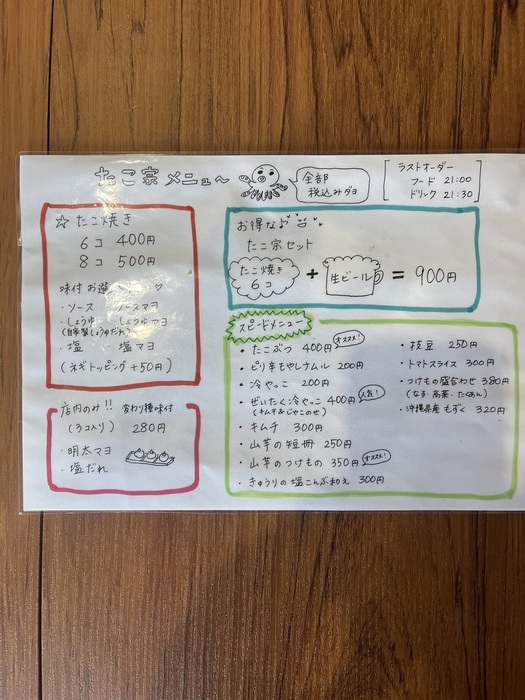 たこ宗メニュ〜
全部
税込みダヨ
ラストオーダー
フード 21:00
ドリンク 21:30
☆ たこ焼き
6コ 400円
8コ 500円
味付 お選
・ソース ソースマヨ
・しょうゆ しょうゆマヨ
(自家製しょうゆだれ)
・塩 塩マヨ
(ネギトッピング +50円)
店内のみ!! 変わり種味付
(3コ入り) 280円
・明太マヨ
・塩だれ
お得な♪
たこ宗セット
たこ焼き
6コ
+
生ビール
= 900円
スピードメニュー
・たこぶつ 400円 オススメ!
・ピリ辛もやしナムル 200円
・冷やっこ 200円
・ぜいたく冷やっこ 400円 人気!
(キムチ&じゃこのせ)
・キムチ 300円
・山芋の短冊 250円
・山芋のつけもの 350円 オススメ!
・きゅうりの塩こんぶ和え 300円
・枝豆 250円
・トマトスライス 300円
・つけもの盛合わせ 380円
(なす・高菜・たくあん)
・沖縄県産もずく 320円